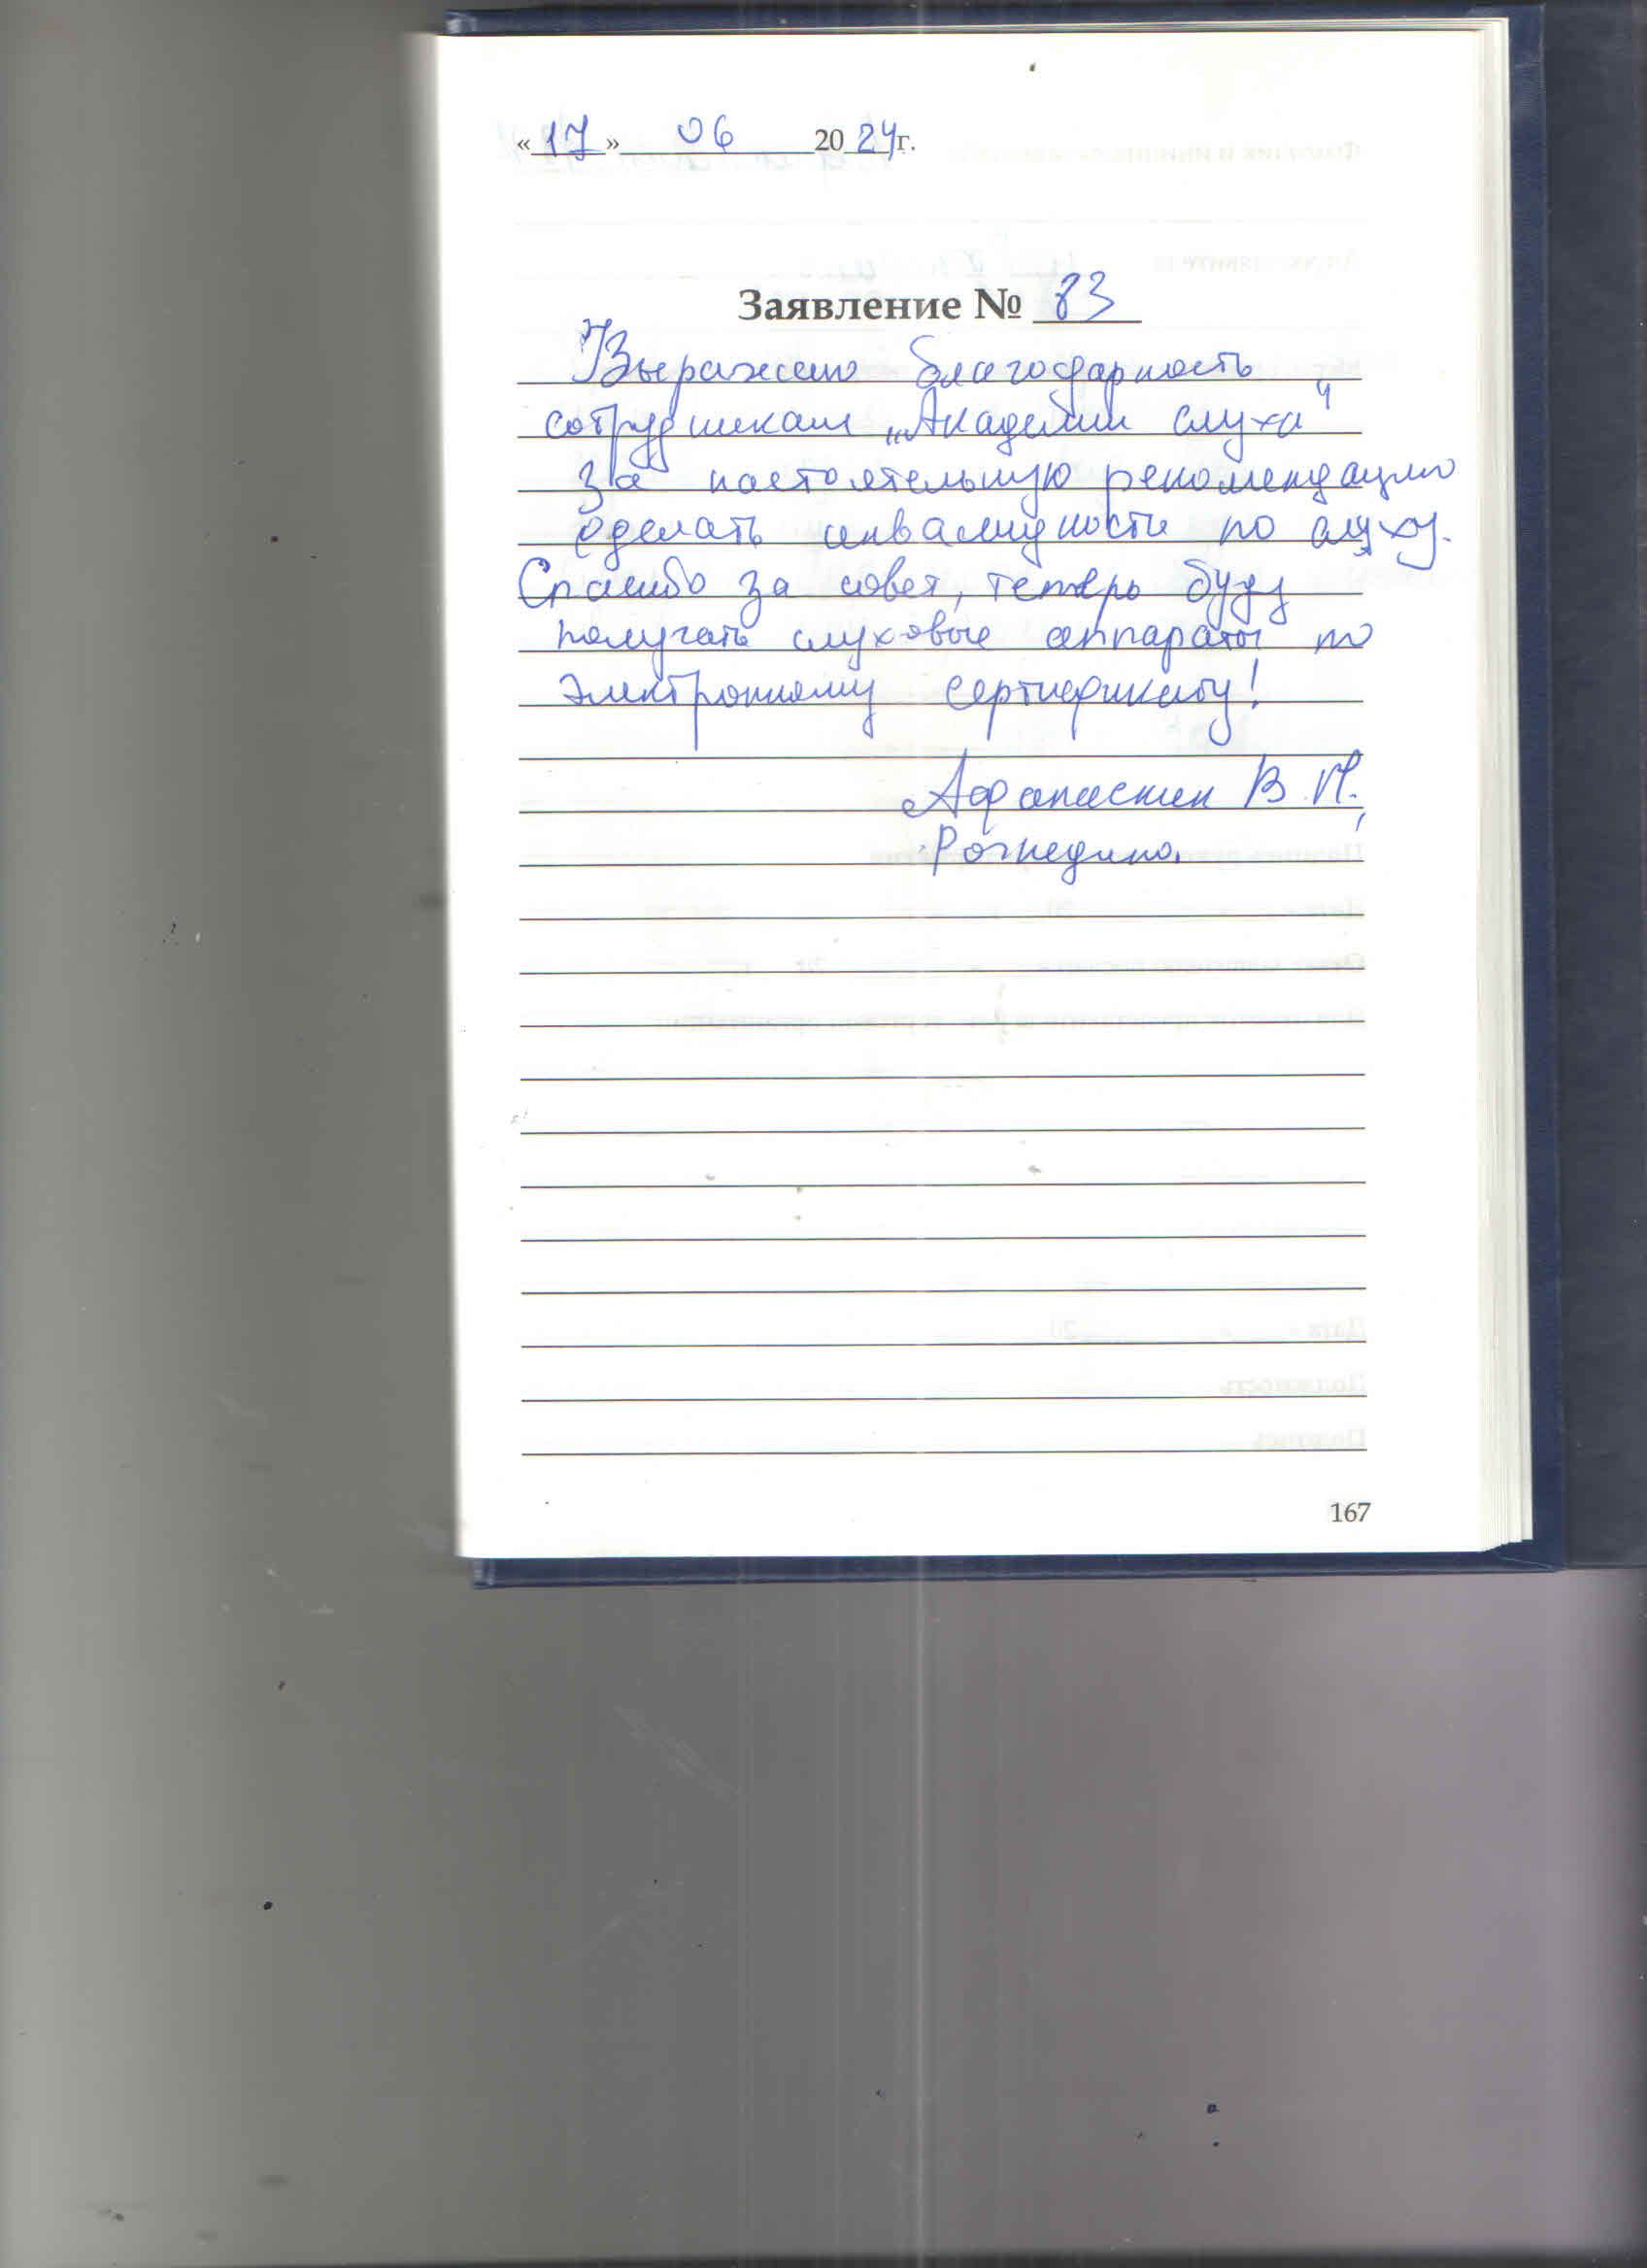 «17» 06 2024г.
Заявление № 83
Выражаю благодарность
сотрудникам „Академии слуха"
за настоятельную рекомендацию
сделать инвалидности по слуху.
Спасибо за совет, теперь буду
получать слуховые аппараты по
электронному сертификату!
Афанаскин В.И.,
Рогнедино.
167